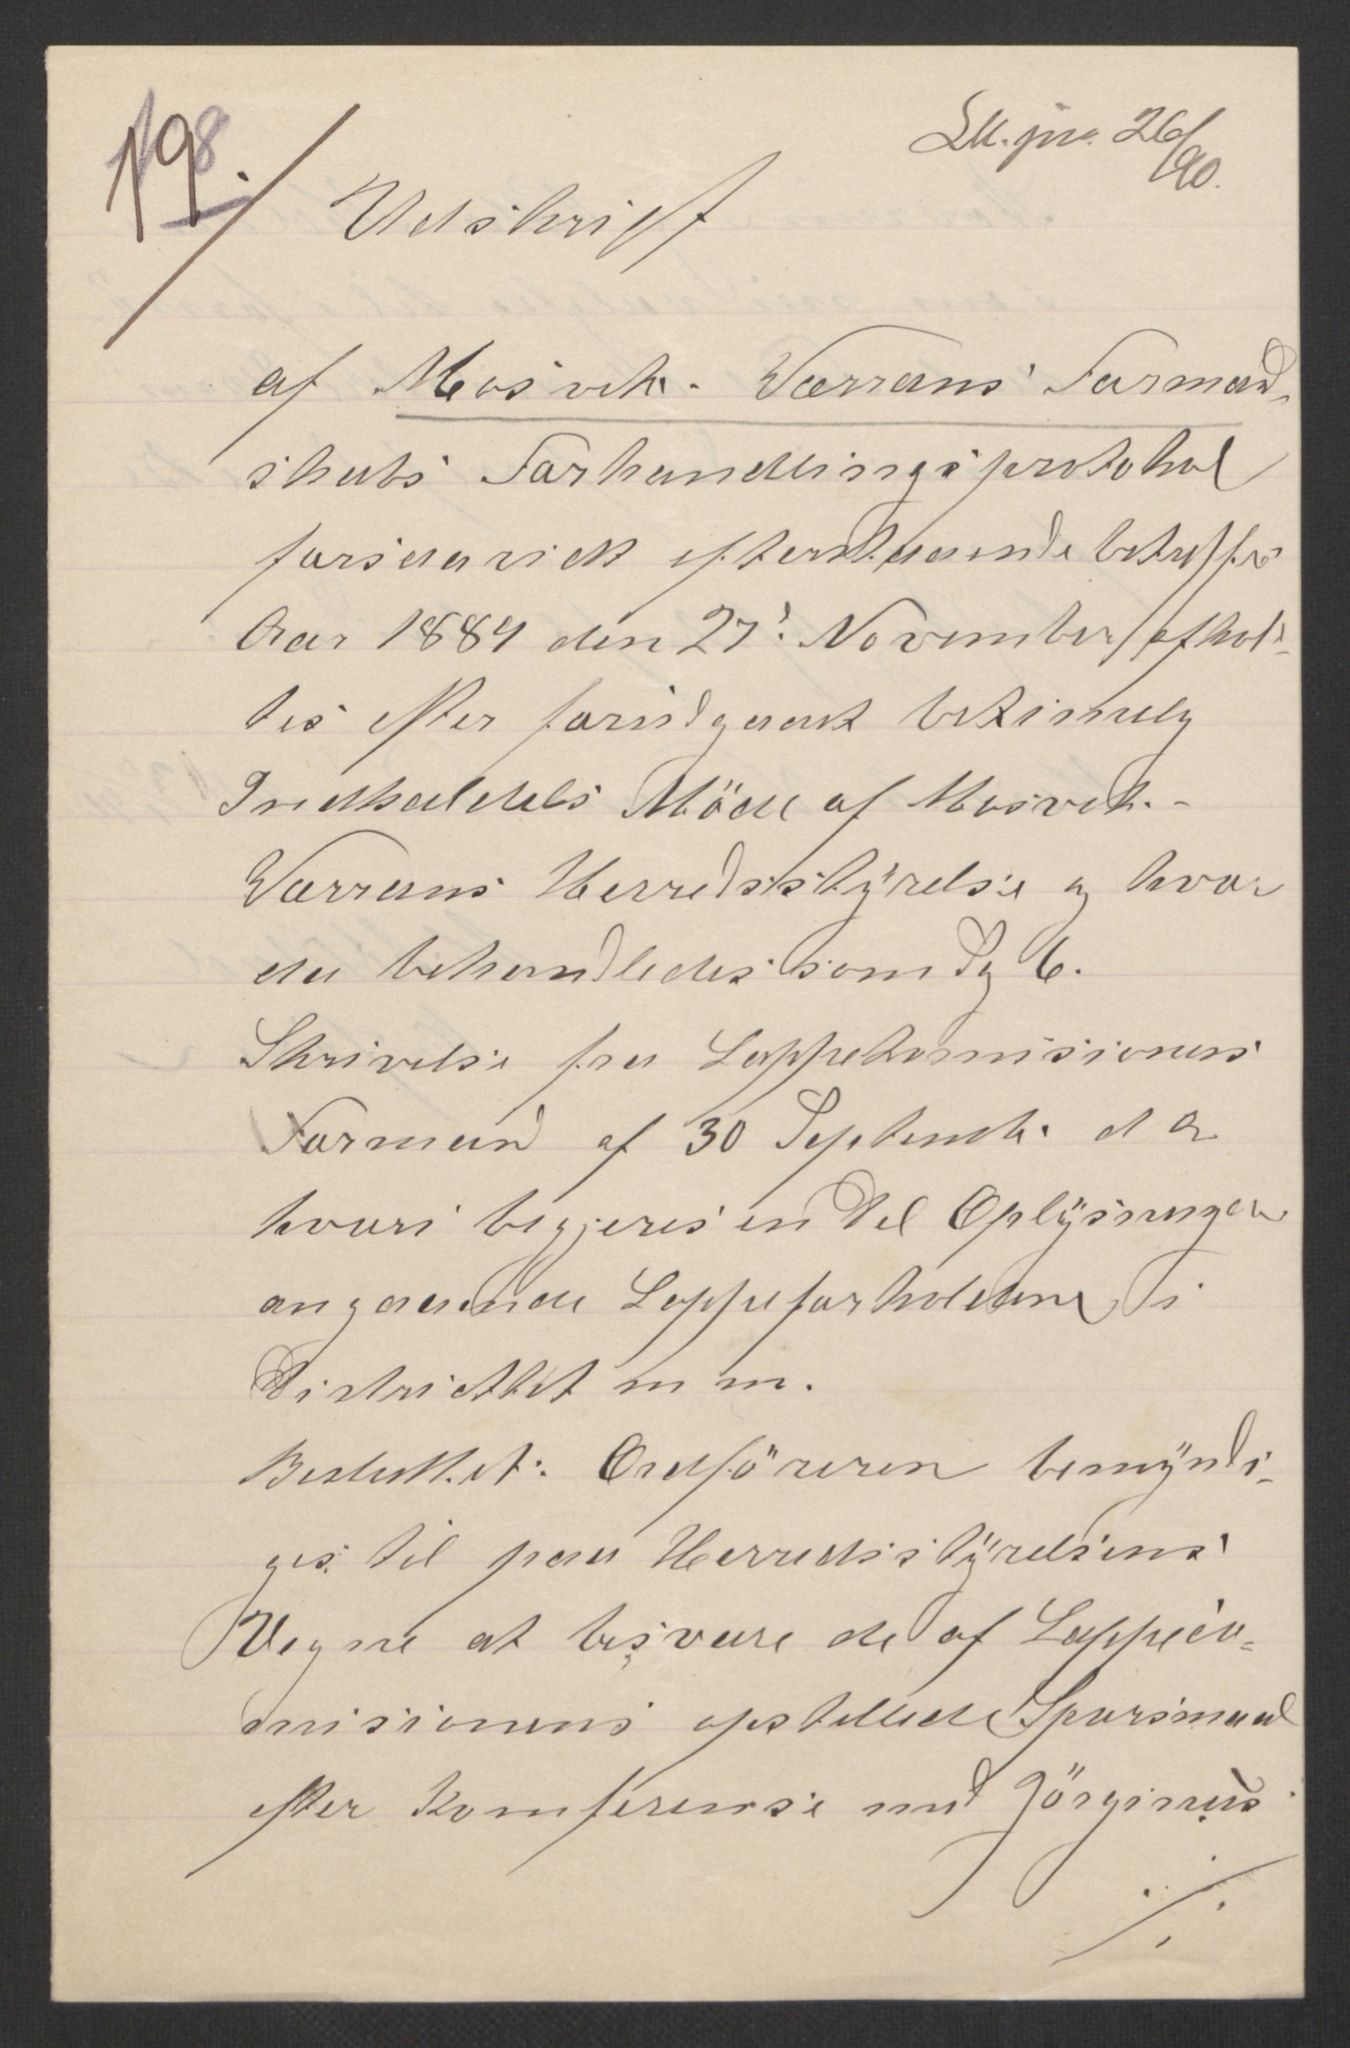 198.
LK. jno. 26/90.
Udskrift
af Mosvik- Værrans Formand-
skabs Forhandlingsprotokol
forsaavidt efterstaaende betreffr
Aar 1889 den 27d: November afhol-
tes efter forudgaaet betimelig
Indkaldels Möde af Mosvik-
Værrans Herredsstÿrelse og hvor
da behandledes som Sg 6.
Skrivelse fra Lappekomisionens
Formand af 30 Septembr. d A
hvori begjeres en Del Oplÿsninger
angaaende Lappeforholdene i
Distriktet m m.
Besluttet: Ordföreren bemÿndi-
ges til paa Herredsstÿrelsens
Vegne at besvare de af Lappeco-
misionens opstillede Spørsmaal
efter Konferense med Jörginus
./.